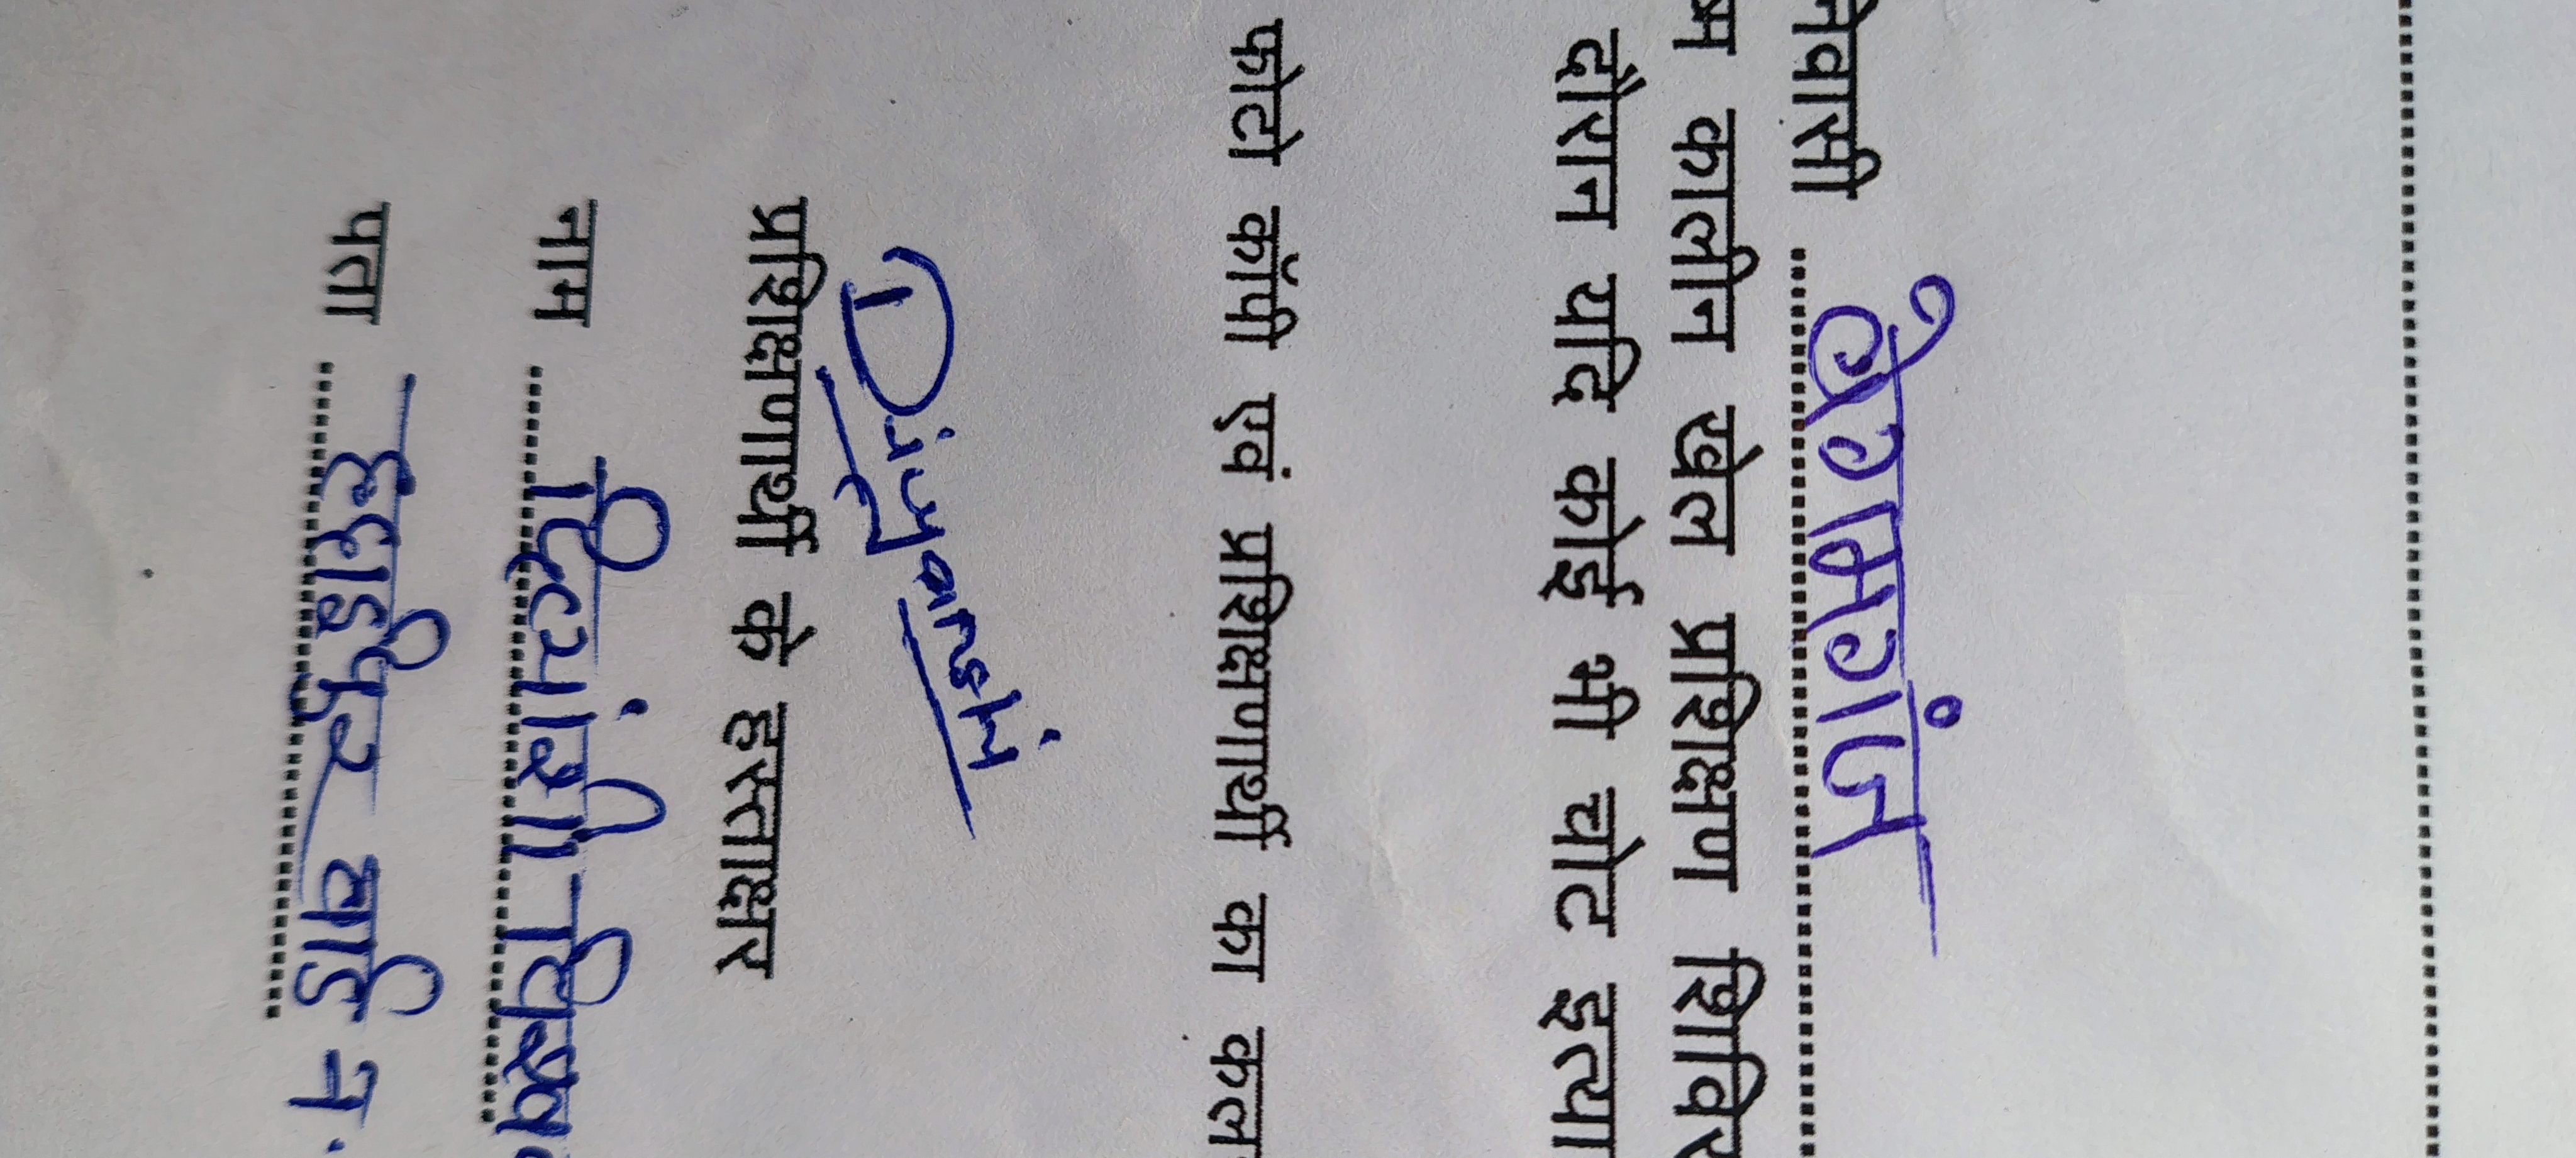 निवासी ............ बेगमगंज ............
ष्म कालीन खेल प्रशिक्षण शिविर
दौरान यदि कोई भी चोट इत्या
फोटो कॉपी एवं प्रशिक्षणार्थी का कल
Divyanshi
प्रशिक्षणार्थी के हस्ताक्षर
नाम ...... दिव्यांशी
पता ...... वार्ड न.